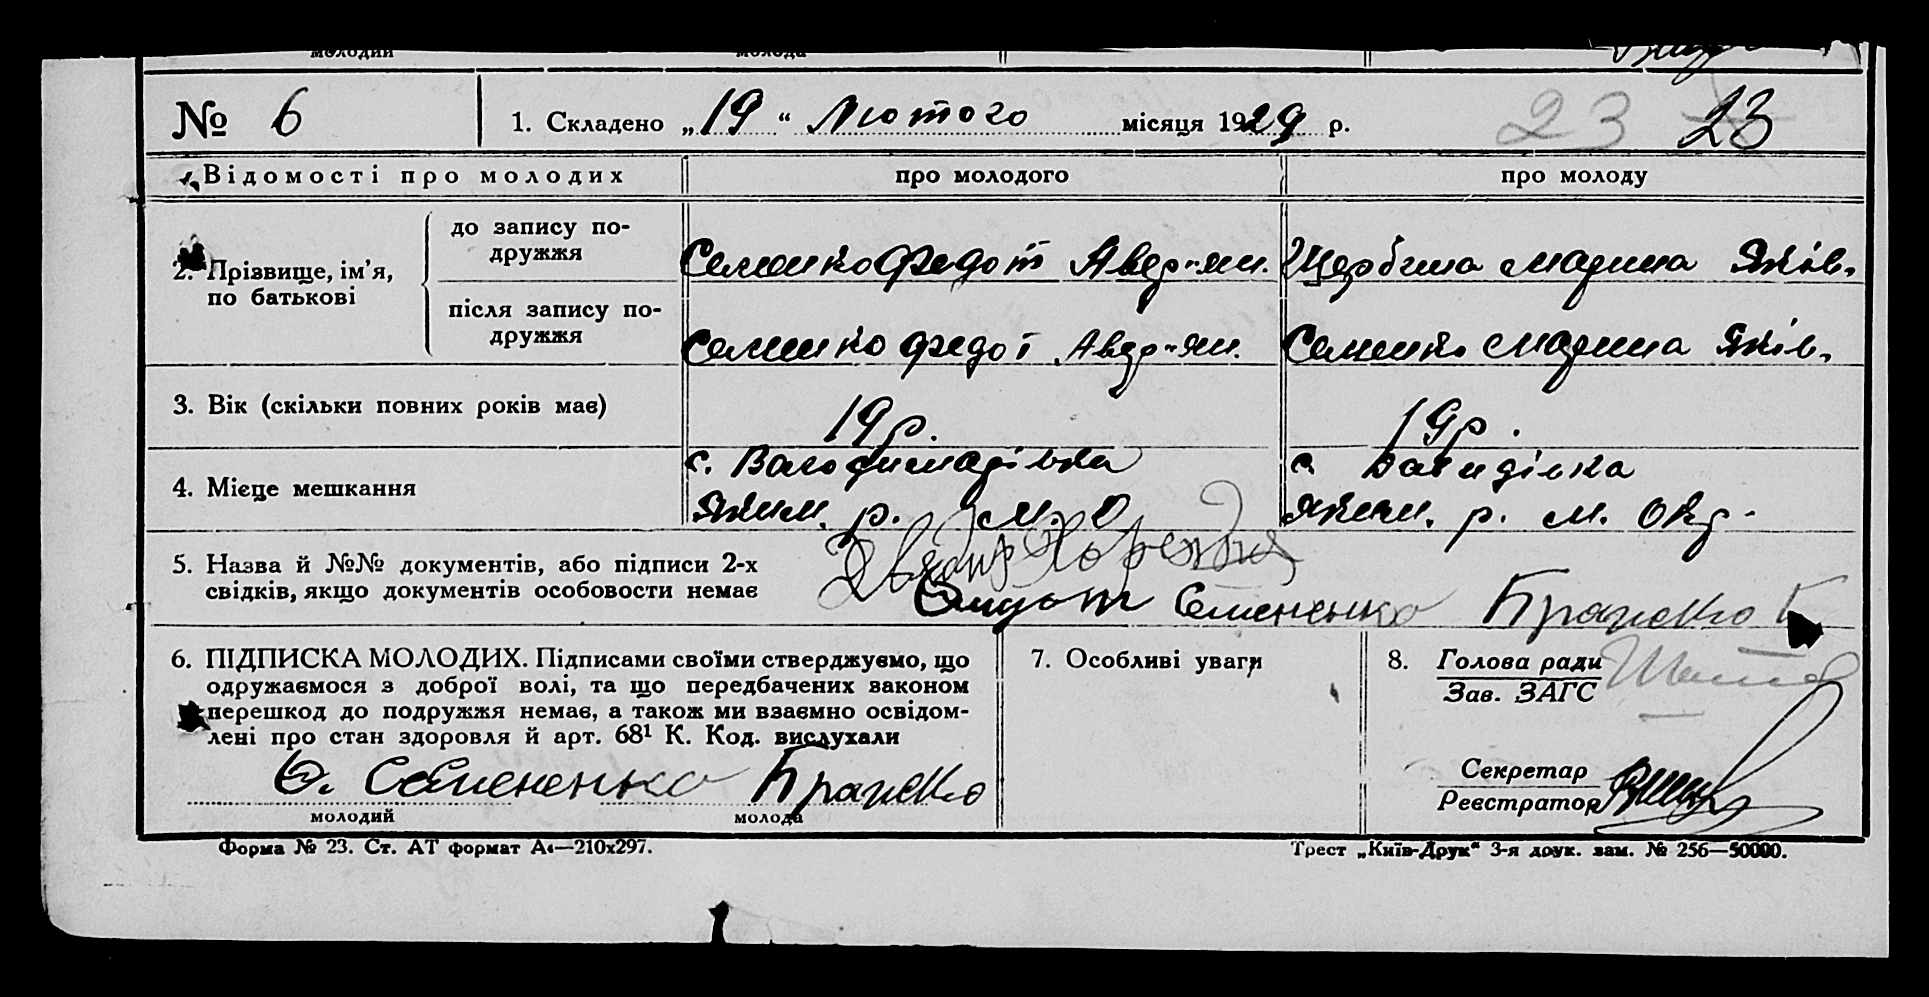 молодий молода
№ 6 1. Складено „19“ Лютого місяця 1929 р. 23 23
Відомості про молодих про молодого про молоду
2. Прізвище, ім’я, по батькові
до запису подружжя Семенко Федот Авер-ян. Щербина Марина Яків.
після запису подружжя Семенко Федот Авер-ян. Семенко Марина Яків.
3. Вік (скільки повних років має) 19 р. 19 р.
4. Місце мешкання с. Володимирівка с. Давидівка
Яким. р. М. О Яким. р. М. Окр.
5. Назва й №№ документів, або підписи 2-х
свідків, якщо документів особовости немає
Семененко
6. ПІДПИСКА МОЛОДИХ. Підписами своїми стверджуємо, що
одружаємося з доброї волі, та що передбачених законом
перешкод до подружжя немає, а також ми взаємно освідом-
лені про стан здоровля й арт. 68¹ К. Код. вислухали
Семененко
молодий молода
7. Особливі уваги
8. Голова ради
Зав. ЗАГС
Секретар
Реєстратор
Форма № 23. Ст. АТ формат А4—210x297. Трест „Київ-Друк“ 3-я друк. зам. № 256—50000.